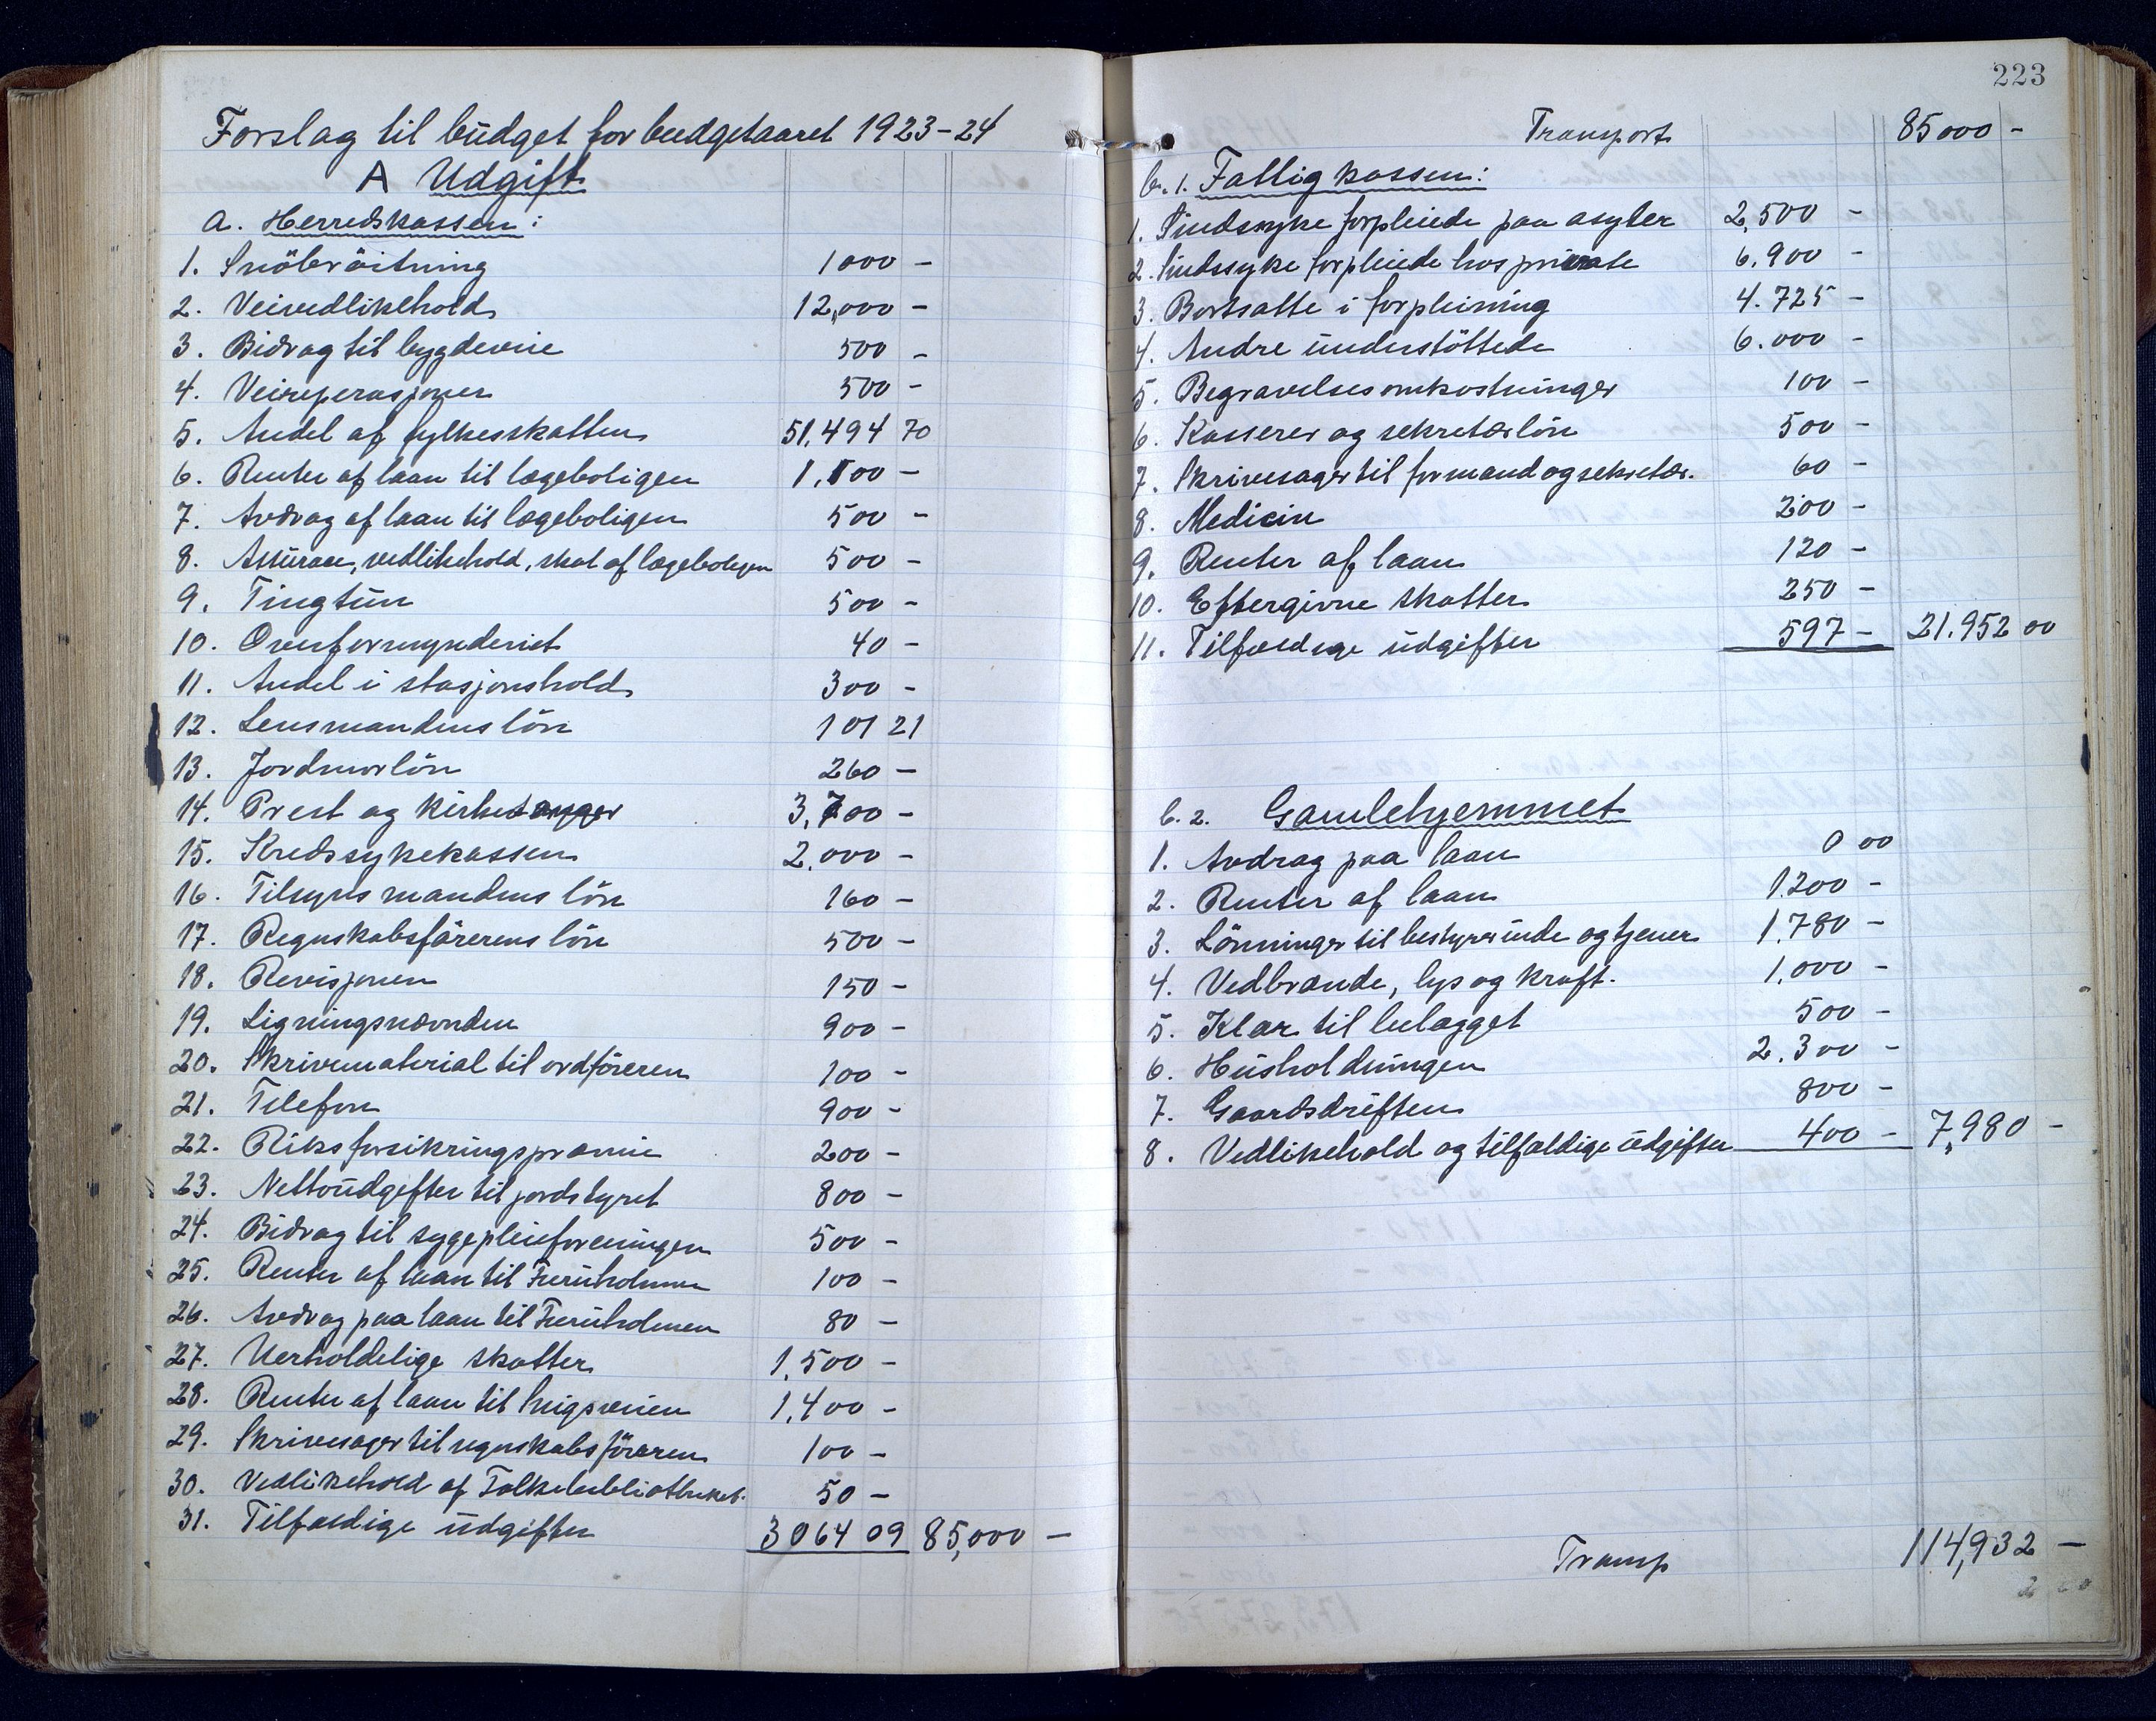 Forslag til budget for budgetaaret 1923-24
A Udgift
a. Herredskassen:
1. Snöbröitning 1000 -
2. Veivedlikehold 12,000 -
3. Bidrag til bygdeveie 500 -
4. Veireperasjoner 500 -
5. Andel af fylkesskatten 51,494 70
6. Renter af laan til lægeboligen 1,100 -
7. Avdrag af laan til lægeboligen 500 -
8. Assurace, vedlikehold, skat af lægeboligen 500 -
9. Tingtun 500 -
10. Overformynderiet 40 -
11. Andel i stasjonshold 300 -
12. Lensmandens lön 101 21
13. Jordmorlön 260 -
14. Prest og kirkesanger 3,700 -
15. Kredssykekassen 2,000 -
16. Tilsynsmandens lön 160 -
17. Regnskabsförerens lön 500 -
18. Revisjonen 150 -
19. Ligningsnævnden 900 -
20. Skrivematerial til ordföreren 100 -
21. Telefon 900 -
22. Riksforsikringspræmie 200 -
23. Nettoudgifter til jordstyret 800 -
24. Bidrag til sygepleieforeningen 500 -
25. Renter af laan til Furuholmen 100 -
26. Avdrag paa laan til Furuholmen 80 -
27. Uerholdelige skatter 1,500 -
28. Renter af laan til 1,400 -
29. Skrivesager til regnskabsföreren 100 -
30. Vedlikehold af Folkebibliotheket. 50 -
31. Tilfældige udgifter 3064 09 85,000 -
223
Transport 85000 -
b. 1. Fattigkassen:
1. Sindsyke forpleiede paa asyler 2,500 -
2. Sindssyke forpleiede hos private 6.900 -
3. Bortsatte i forpleining 4.725 -
4. Andre understöttede 6.000 -
5. Begravelsesomkostninger 100 -
6. Kasserer og sekretærlön 500 -
7. Skrivesager til formand og sekretær. 60 -
8. Medicin 200 -
9. Renter af laan 120 -
10. Eftergivne skatter 250 -
11. Tilfældige udgifter 597 - 21.952 00
b. 2. Gamlehjemmet
1. Avdrag paa laan 0 00
2. Renter af laan 1.200 -
3. Lönninger til bestyrerinde og tjener 1.780 -
4. Vedbrænde, lys og kraft. 1,000 -
5. Klær til belægget 500 -
6. Husholdningen 2.300 -
7. Gaardsdriften 800 -
8. Vedlikehold og tilfældige udgifter 400 - 7,980 -
Transp 114,932 -